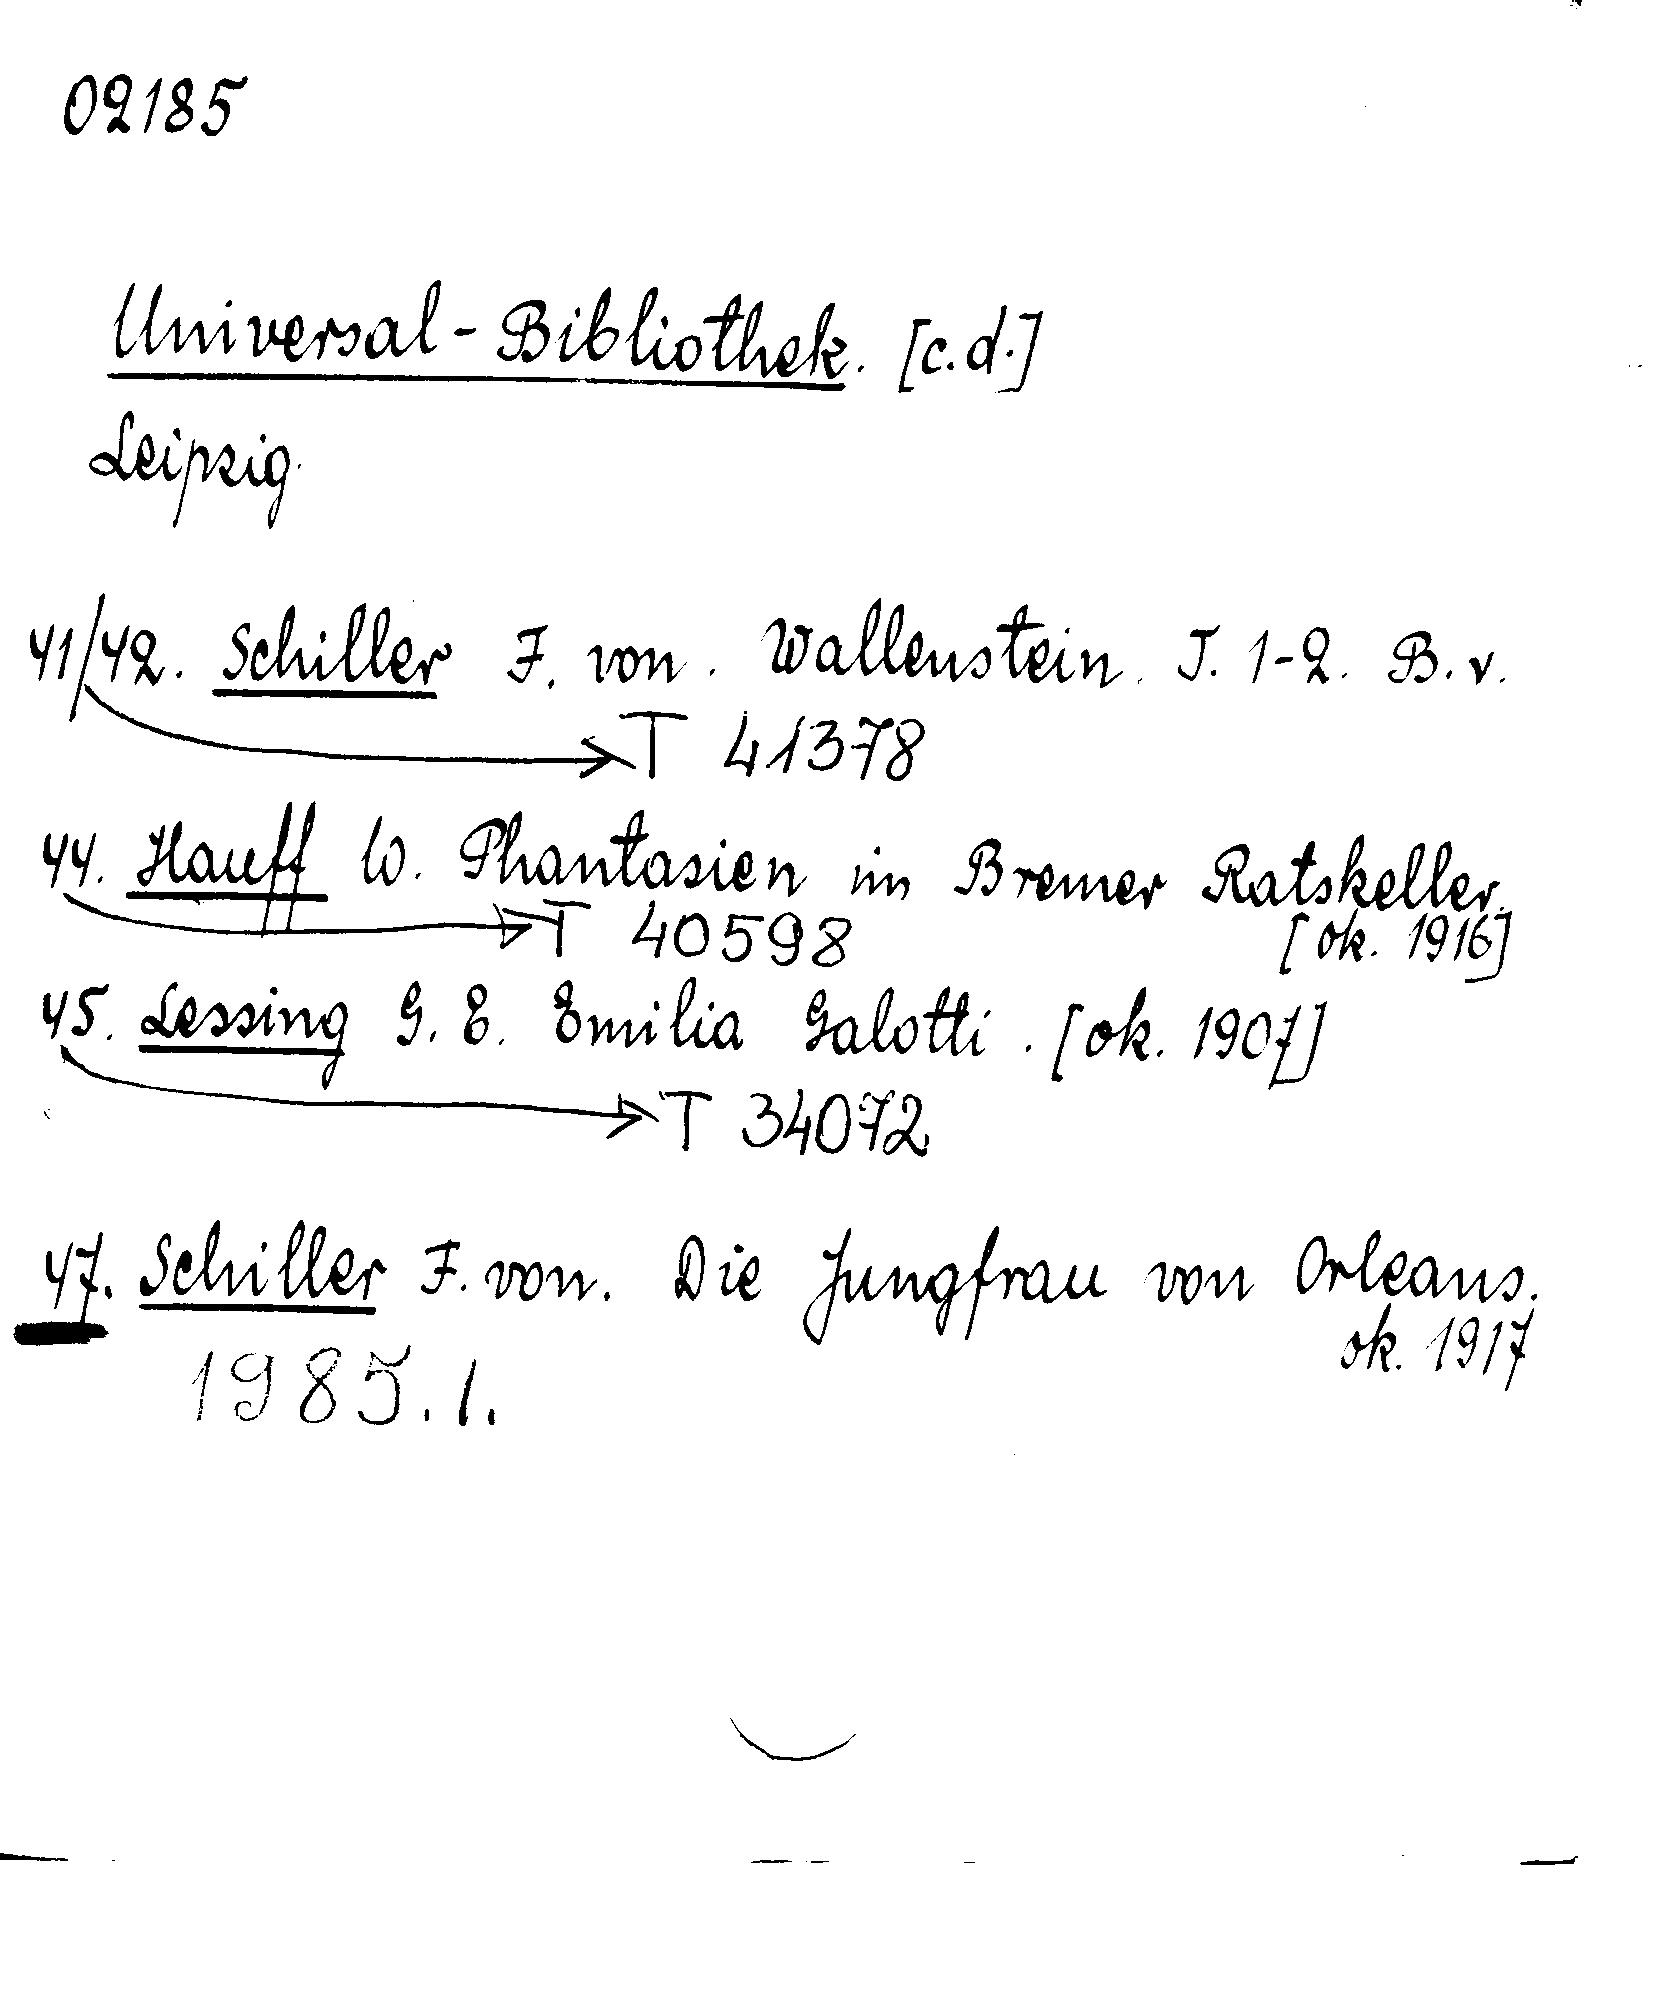 02185
Universal-Bibliothek. [c.d.]
Leipzig.
41/42. Schiller F. von. Wallenstein. T. 1-2. B.v.
T 41378
44. Hauff W. Phantasien im Bremer Ratskeller.
T 40598 [ok. 1916]
45. Lessing G. E. Emilia Galotti. [ok. 1907]
T 34072
47. Schiller F. von. Die Jungfrau von Orleans.
ok. 1917
1985.1.